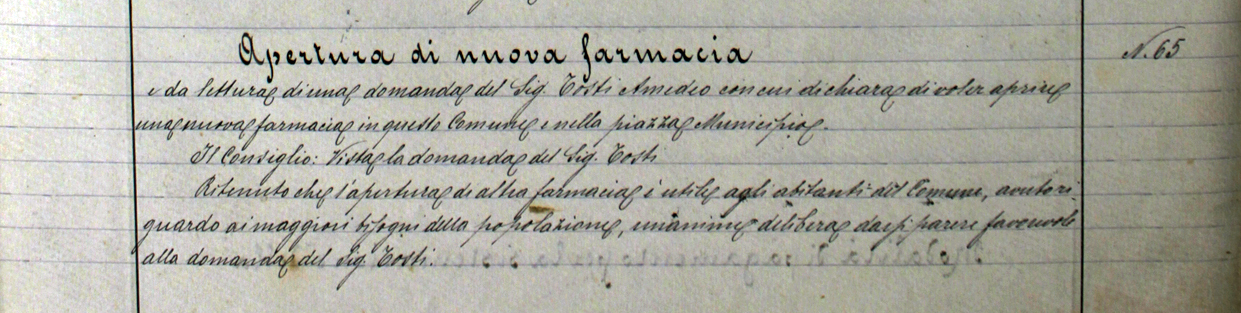 Apertura di nuova farmacia
N. 65
e da lettura di una domanda del Sig. Tosti Amedeo con cui dichiara di voler aprire
una nuova farmacia in questo Comune e nella piazza Municipio.
Il Consiglio: Vista la domanda del Sig. Tosti
Ritenuto che l'apertura di altra farmacia è utile agli abitanti del Comune, avuto ri
guardo ai maggiori bisogni della popolazione, unanime delibera darsi parere favorevole
alla domanda del Sig. Tosti.